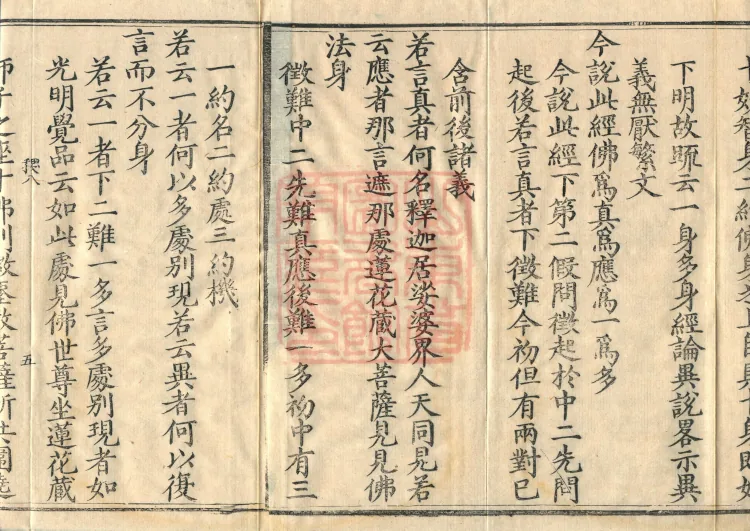 下明故䟽云一身多身經論異說畧示異
義無厭繁文
今說此經佛爲真爲應爲一爲多
今說此經下第二假問徵起於中二先問
起後若言真者下徵難今初但有兩對已
含前後諸義
若言真者何名釋迦居娑婆界人天同見若
云應者那言遮那處蓮花藏大菩薩見見佛
法身
徵難中二先難真應後難一多初中有三
一約名二約處三約機
若云一者何以多處別現若云異者何以復
言而不分身
若云一者下二難一多言多處別現者如
光明覺品云如此處見佛世尊坐蓮花藏
五
師子之座十佛刹微塵數菩薩所共圍遶